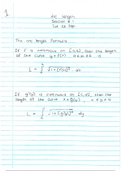 Arc Length
Section 8.1
The Arc Length Formula
If f' is continuous on [a,b], then the length
of the curve y = f(x), a ≤ x ≤ b is
L = ∫ₐᵇ √(1 + [f'(x)]²) dx
If g'(y) is continuous on [c,d], then the
length of the curve x = g(y), c ≤ y ≤ d
L = ∫ √(1 + [g'(y)]²) dy